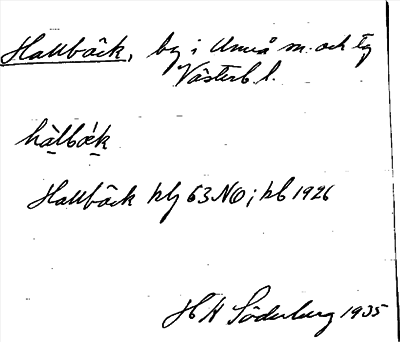 Hallbäck, by i Umeå sn. och tg
Västerb. l.
hàlbǽk
Hallbäck blj 63 NO; kb 1926
H H Söderberg 1935